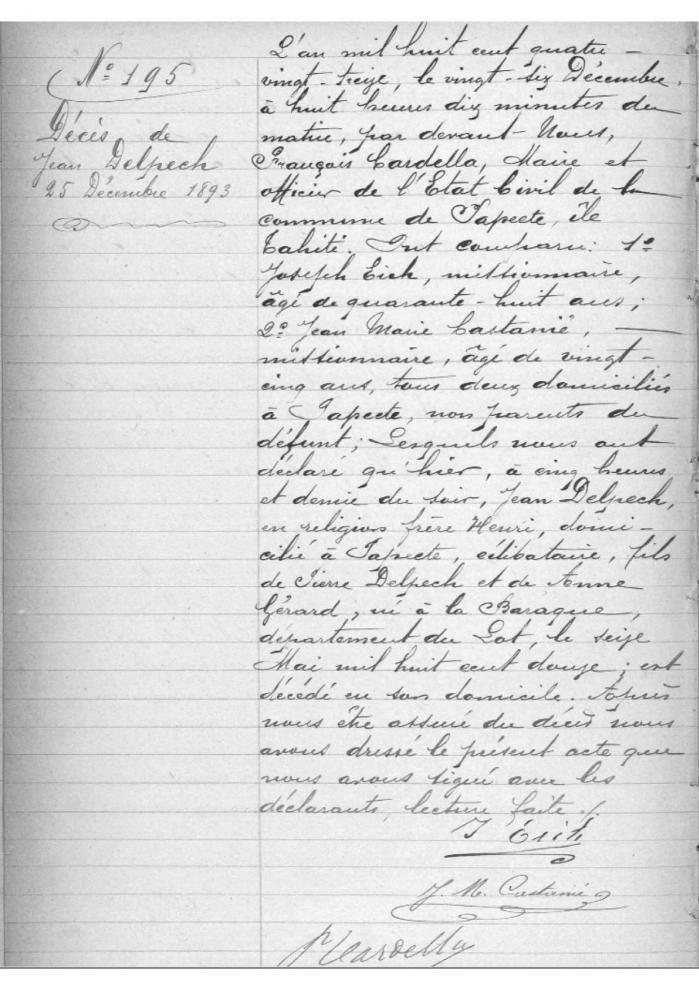 Nº 195
Décès de
Jean Delpech
25 Décembre 1893
L'an mil huit cent quatre-
vingt-treize, le vingt-six Décembre,
à huit heures dix minutes du
matin, par devant Nous,
François Cardella, Maire et
officier de l'Etat Civil de la
commune de Papeete, île
Tahiti. Ont comparu: 1º
Joseph Eich, missionnaire,
âgé de quarante-huit ans;
2º Jean Marie Castanié,
missionnaire, âgé de vingt-
cinq ans, tous deux domiciliés
à Papeete, non parents du
défunt; Lesquels nous ont
déclaré qu'hier, à cinq heures
et demie du soir, Jean Delpech,
en religion frère Henri, domi-
cilié à Papeete, célibataire, fils
de Pierre Delpech et de Anne
Gérard, né à la Baraque,
département du Lot, le seize
Mai mil huit cent douze; est
décédé en son domicile. Après
nous être assuré du décès nous
avons dressé le présent acte que
nous avons signé avec les
déclarants, lecture faite ./.
J Eich
J. M. Castanié
Fr Cardella